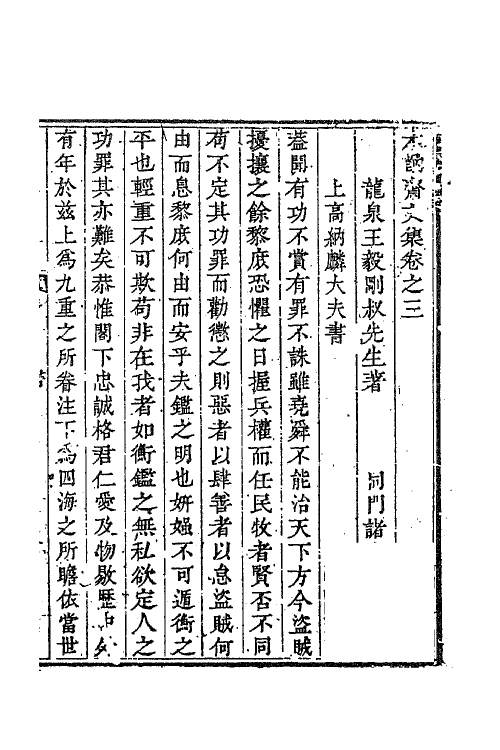 木訥齋文集卷之三
龍泉王毅剛叔先生著 同門諸
上高納麟大夫書
葢聞有功不賞有罪不誅雖堯舜不能治天下方今盜賊
擾攘之餘黎庶恐懼之日握兵權而任民牧者賢否不同
苟不定其功罪而勸懲之則惡者以肆善者以怠盜賊何
由而息黎庶何由而安乎夫鑑之明也妍媸不可遁衡之
平也輕重不可欺苟非在我者如衡鑑之無私欲定人之
功罪其亦難矣恭惟閣下忠誠格君仁愛及物敭歷中外
有年於兹上爲九重之所眷注下爲四海之所瞻依當世